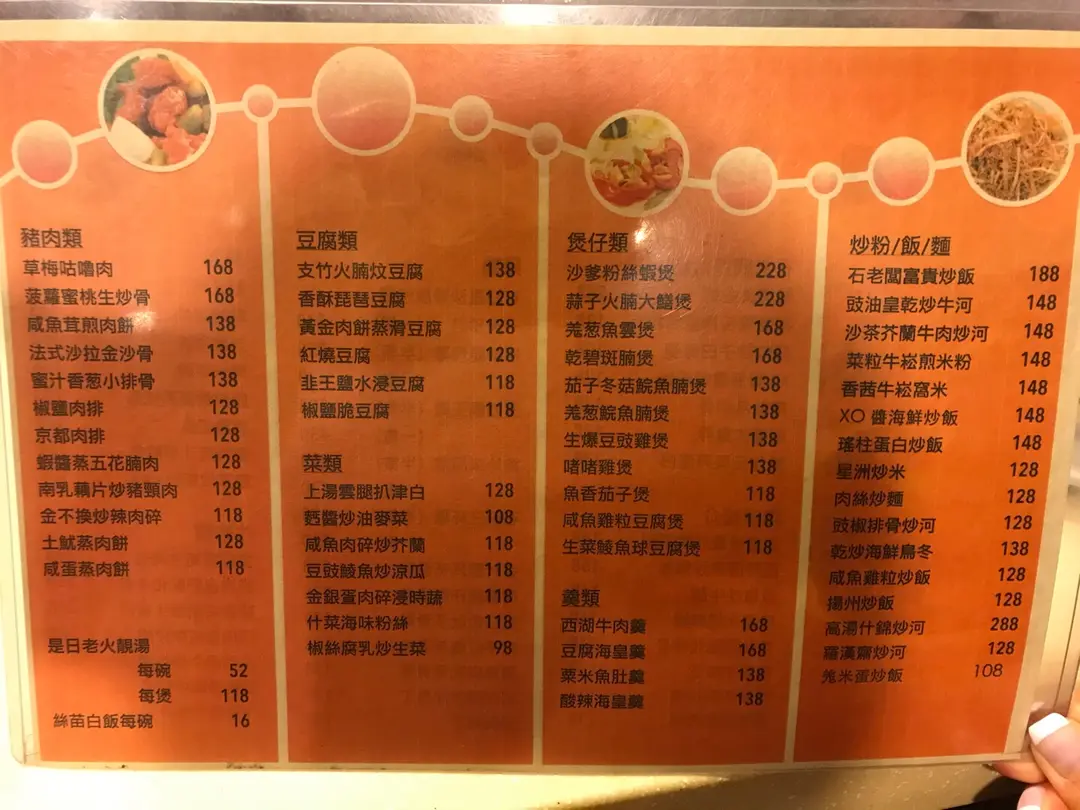 豬肉類
草梅咕嚕肉 168
菠蘿蜜桃生炒骨 168
咸魚茸煎肉餅 138
法式沙拉金沙骨 138
蜜汁香葱小排骨 138
椒鹽肉排 128
京都肉排 128
蝦醬蒸五花腩肉 128
南乳藕片炒豬頸肉 128
金不換炒辣肉碎 118
土魷蒸肉餅 128
咸蛋蒸肉餅 118
是日老火靚湯
每碗 52
每煲 118
絲苗白飯每碗 16
豆腐類
支竹火腩炆豆腐 138
香酥琵琶豆腐 128
黃金肉餅蒸滑豆腐 128
紅燒豆腐 128
韭王鹽水浸豆腐 118
椒鹽脆豆腐 118
菜類
上湯雲腿扒津白 128
麫醬炒油麥菜 108
咸魚肉碎炒芥蘭 118
豆豉鯪魚炒涼瓜 118
金銀蛋肉碎浸時蔬 118
什菜海味粉絲 118
椒絲腐乳炒生菜 98
煲仔類
沙爹粉絲蝦煲 228
蒜子火腩大鱔煲 228
羗葱魚雲煲 168
乾碧斑腩煲 168
茄子冬菇鯇魚腩煲 138
羗葱鯇魚腩煲 138
生爆豆豉雞煲 138
啫啫雞煲 138
魚香茄子煲 118
咸魚雞粒豆腐煲 118
生菜鯪魚球豆腐煲 118
羹類
西湖牛肉羹 168
豆腐海皇羹 168
粟米魚肚羹 138
酸辣海皇羹 138
炒粉/飯/麵
石老闆富貴炒飯 188
豉油皇乾炒牛河 148
沙茶芥蘭牛肉炒河 148
菜粒牛崧煎米粉 148
香茜牛崧窩米 148
XO 醬海鮮炒飯 148
瑤柱蛋白炒飯 148
星洲炒米 128
肉絲炒麵 128
豉椒排骨炒河 128
乾炒海鮮烏冬 138
咸魚雞粒炒飯 128
揚州炒飯 128
高湯什錦炒河 288
羅漢齋炒河 128
米蛋炒飯 108